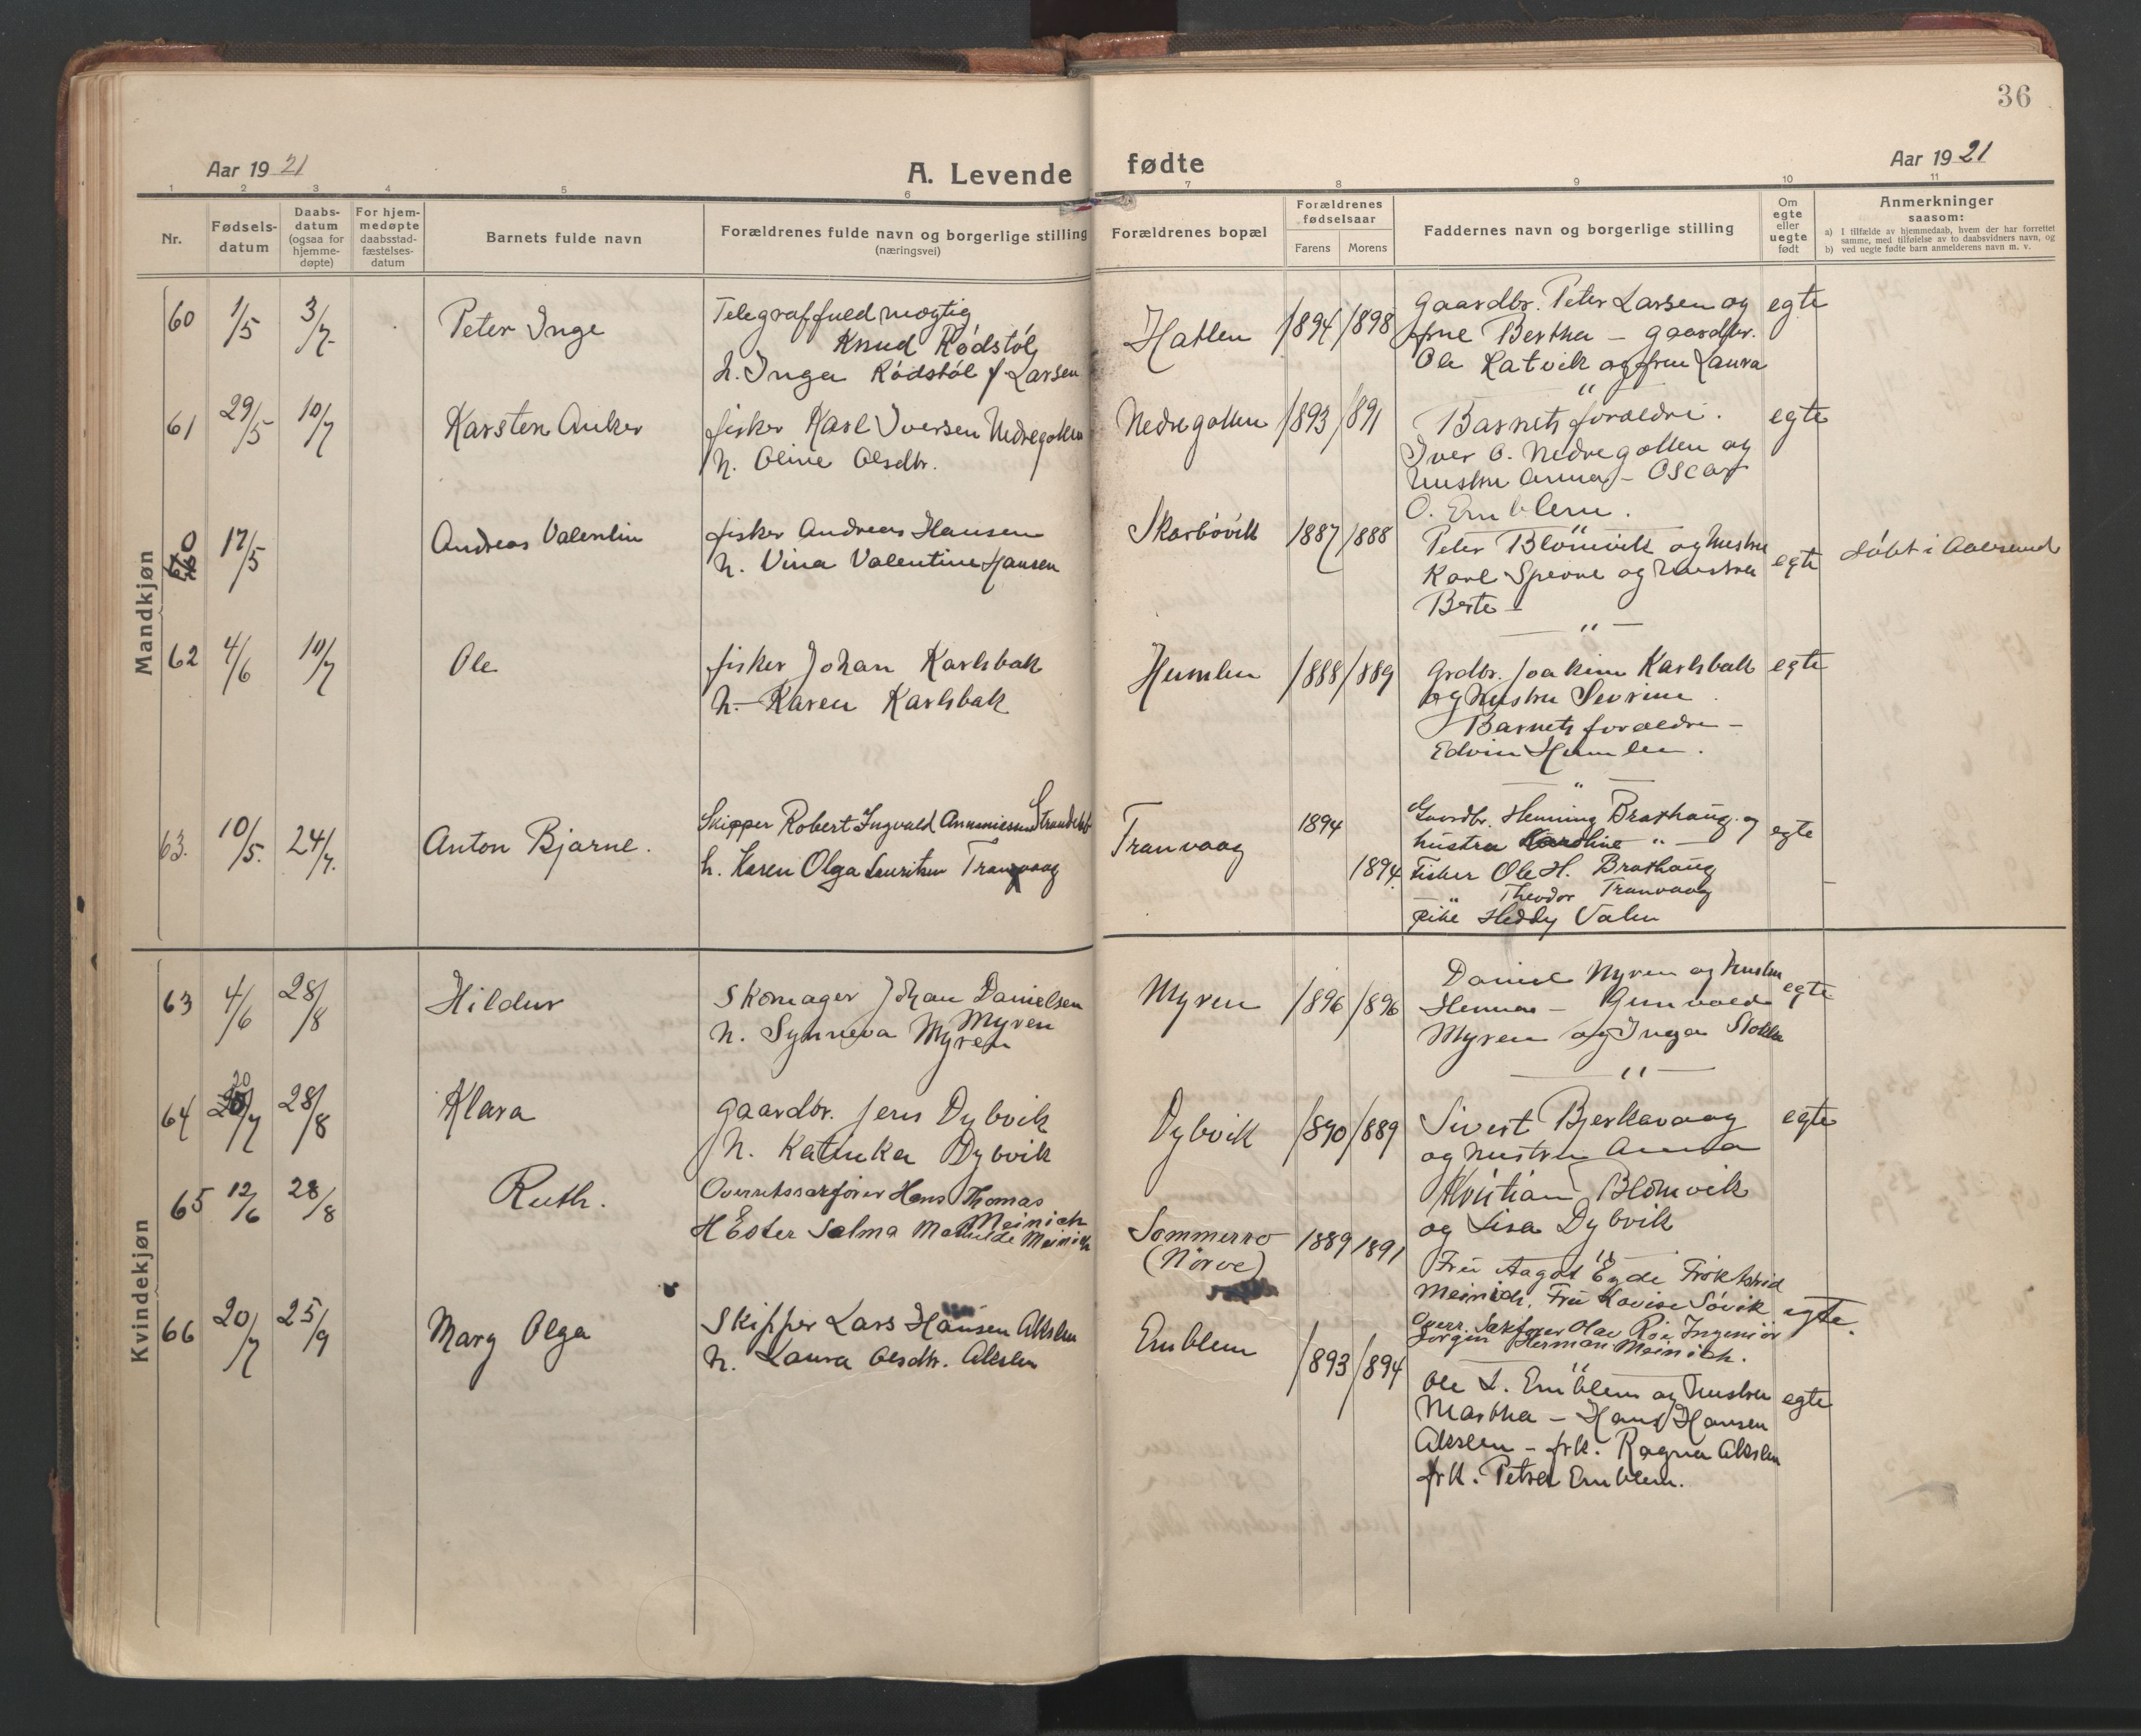 36
Aar 1921
A. Levende fødte
Aar 1921
1 2 3 4 5 6 7 8 9 10 11
Nr.
Fødsels-
datum
Daabs-
datum
(ogsaa for
hjemme-
døpte)
For hjem-
medøpte
daabsstad-
fæstelses-
datum
Barnets fulde navn
Forældrenes fulde navn og borgerlige stilling
(næringsvei)
Forældrenes bopæl
Forældrenes
fødselsaar
Farens Morens
Faddernes navn og borgerlige stilling
Om
egte
eller
uegte
født
Anmerkninger
saasom:
a) I tilfælde av hjemmedaab, hvem der har forrettet
samme, med tilføielse av to daabsvidners navn, og
b) ved uegte fødte barn anmelderens navn m. v.
Mandkjøn
60 1/5 3/7 Peter Inge
Telegraffuldmægtig
Knud Rødstøl
h. Inga Rødstøl f Larsen
Hatlen 1894 1898
Gaardbr. Peter Larsen og
frue Bertha – gaardbr.
Ole Ratvik og frue Laura
egte
61 29/5 10/7 Karsten Anker
fisker Karl Iversen Nedregotten
h. Oline Olsdtr.
Nedregotten 1893 1891
Barnets forældre.
Iver O. Nedregotten og
hustru Anna – Oscar
O. Emblem.
egte
17/5 Andreas Valentin
fisker Andreas Hansen
h. Vina Valentine Hansen
Skarbøvik 1887 1888
Peter Blomvik og hustru
Karl Sperre og hustru
Berte –
egte
døbt i Aalesund
62 4/6 10/7 Ole
fisker Johan Karlsbak
h. – Karen Karlsbak
Humlen 1888 1889
Grdbr. Joakim Karlsbak
og hustru Sevrine
Barnets forældre –
Edvin Humlen.
egte
63. 10/5. 24/7. Anton Bjarne.
Skipper Robert Ingvald
h. Karen Olga Lauritsen Tranvaag
Tranvaag 1894
1894.
Gaardbr. Henning Brathaug og
hustru "–
Fisker Ole H. Brathaug
" Theodor Tranvaag
Pike Heddy Valen
egte
Kvindekjøn
63 4/6 28/8 Hildur
Skomager Johan Danielsen
Myren
h. Synneva Myren
Myren 1896 1896
Daniel Myren og hustru
Gunvald
Myren og Inga
egte
64 20/7 28/8 Klara
gaardbr. Jens Dybvik
h. Katinka Dybvik
Dybvik 1890 1889
Sivert Bjerkavaag
og hustru Anna
Kristian Blomvik
og Lisa Dybvik
egte
65 12/6 28/8 Ruth.
Overretssakfører Hans Thomas
Meinich
H Ester Selma Mathilde Meinich
Sommerro
(Nörve)
1889 1891
Fru Aagot Egde Frøk
Meinich. Fru Lovise Søvik
Overr. Sakfører Olav Röe Ingeniör
Jörgen Herman Meinich.
egte.
66 20/7 25/9 Mary Olga
Skipper Lars Hansen Akslen
h. Laura Olsdtr. Akslen
Emblem 1893 1894
Ole L. Emblem og hustru
Martha – Hans Hansen
Akslen – frk. Ragna Akslen
frk. Petra Emblem.
egte